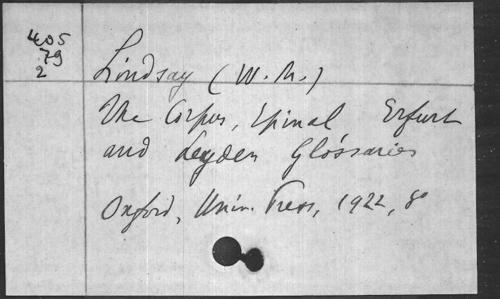 405
79
2
Lindsay (W. M.)
The Corpus, Epinal Erfurt
and Leyden Glossaries
Oxford, Univ. Press, 1922, 8°